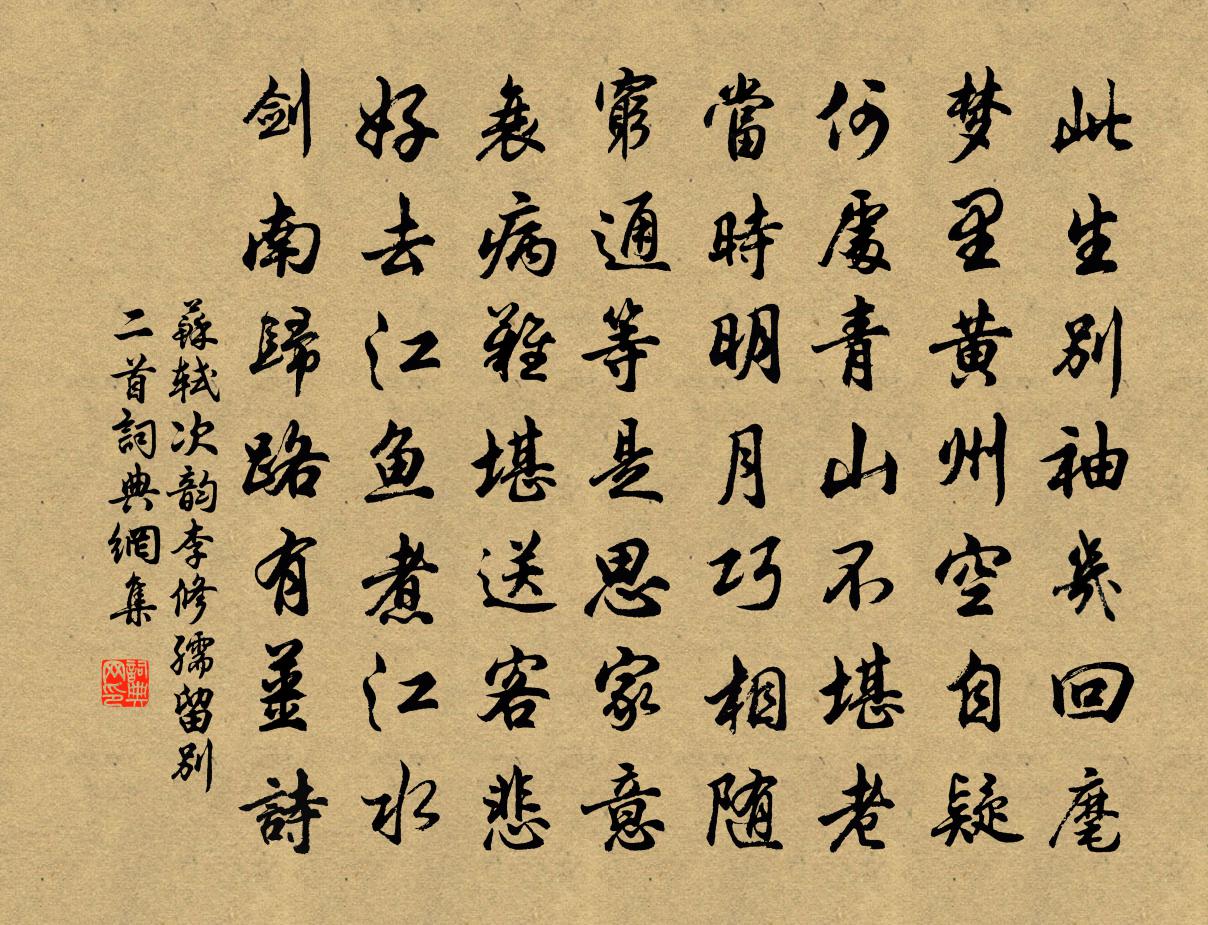 此生别袖幾回麾
梦里黄州空自疑
何處青山不堪老
當時明月巧相随
窮通等是思家意
衰病難堪送客悲
好去江魚煮江水
剑南歸路有薑詩
蘇轼次韵李修孺留别
二首詞典網集
詞典网印